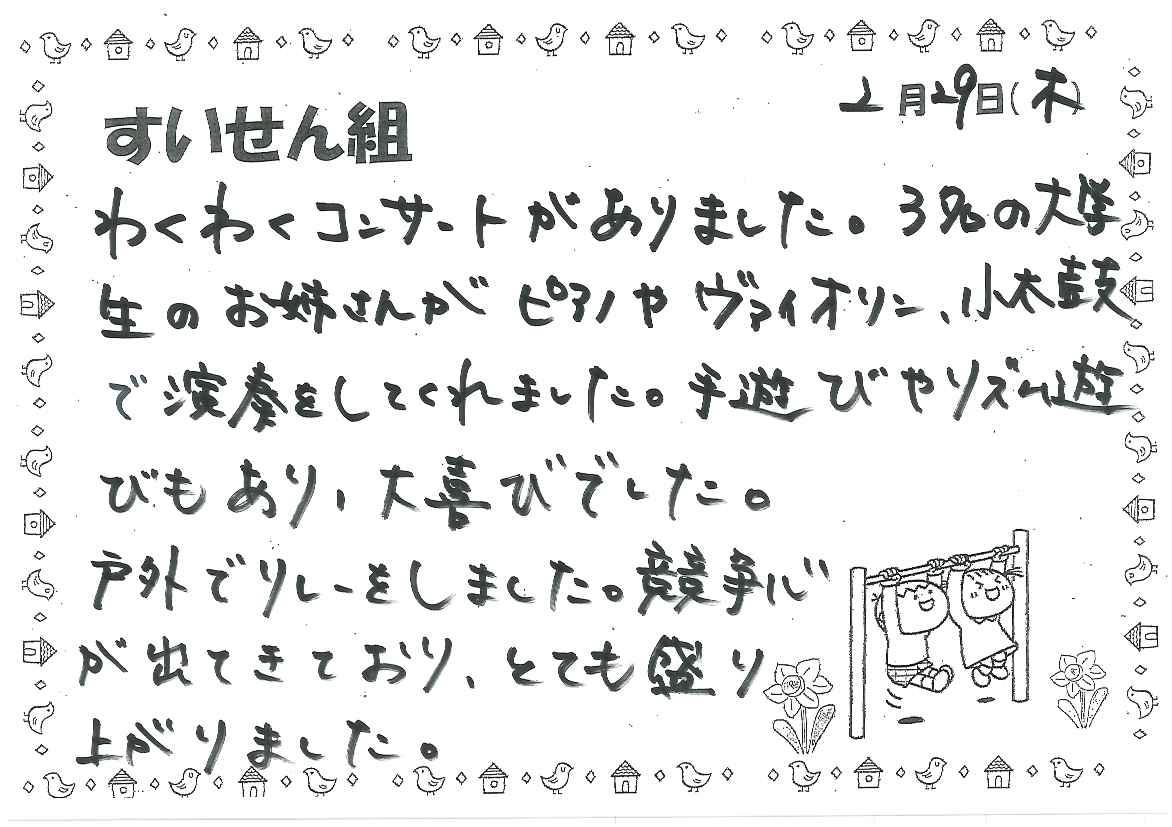 2月29日(木)
すいせん組
わくわくコンサートがありました。3名の大学
生のお姉さんがピアノやヴァイオリン、小太鼓
で演奏をしてくれました。手遊びやリズム遊
びもあり、大喜びでした。
戸外でリレーをしました。競争心
が出てきており、とても盛り
上がりました。